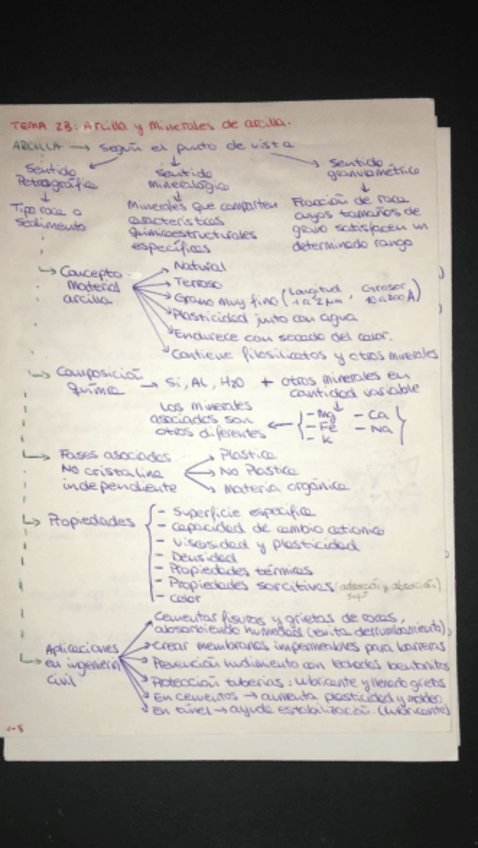 TEMA 2B: Arcilla y Minerales de arcilla.
ARCILLA → Según el punto de vista
Sentido Petrográfico
Tipo roca o sedimento
Sentido mineralógico
Minerales que comparten
características
químicoestructurales
específicas
Sentido granulométrico
Fracción de roca
cuyos tamaños de
grano satisfacen un
determinado rango
Concepto
Material
arcilla
Natural
Terroso
Grano muy fino (Longitud 1 a 2 µm, Grosor 10 a 200 Å)
Plasticidad junto con agua
Endurece con secado del calor.
Contiene filosilicatos y otros minerales
Composición
Química → Si, Al, H2O + otros minerales en
cantidad variable
- Mg - Ca
- Fe - Na
- K
Los minerales
asociados son
otros diferentes
Fases asociadas
No cristalina
independiente
Plastica
No Plastica
Materia orgánica
Propiedades
- Superficie específica
- Capacidad de cambio cationico
- Viscosidad y plasticidad
- Densidad
- Propiedades térmicas
- Propiedades sorcitivas (adsorción y absorción)
- color
Aplicaciones
en ingeniería
civil
Cementar fisuras y grietas de rocas,
absorbiendo humedad (evita derrumbamiento)
Crear membranas impermeables para barreras
Prevención hudimiento con lechadas bentonitas
Protección tuberias: lubricante y llenado grietas
En cementos → aumenta plasticidad y moldeo
En túnel → ayuda estabilización. (lubricante)
1-8